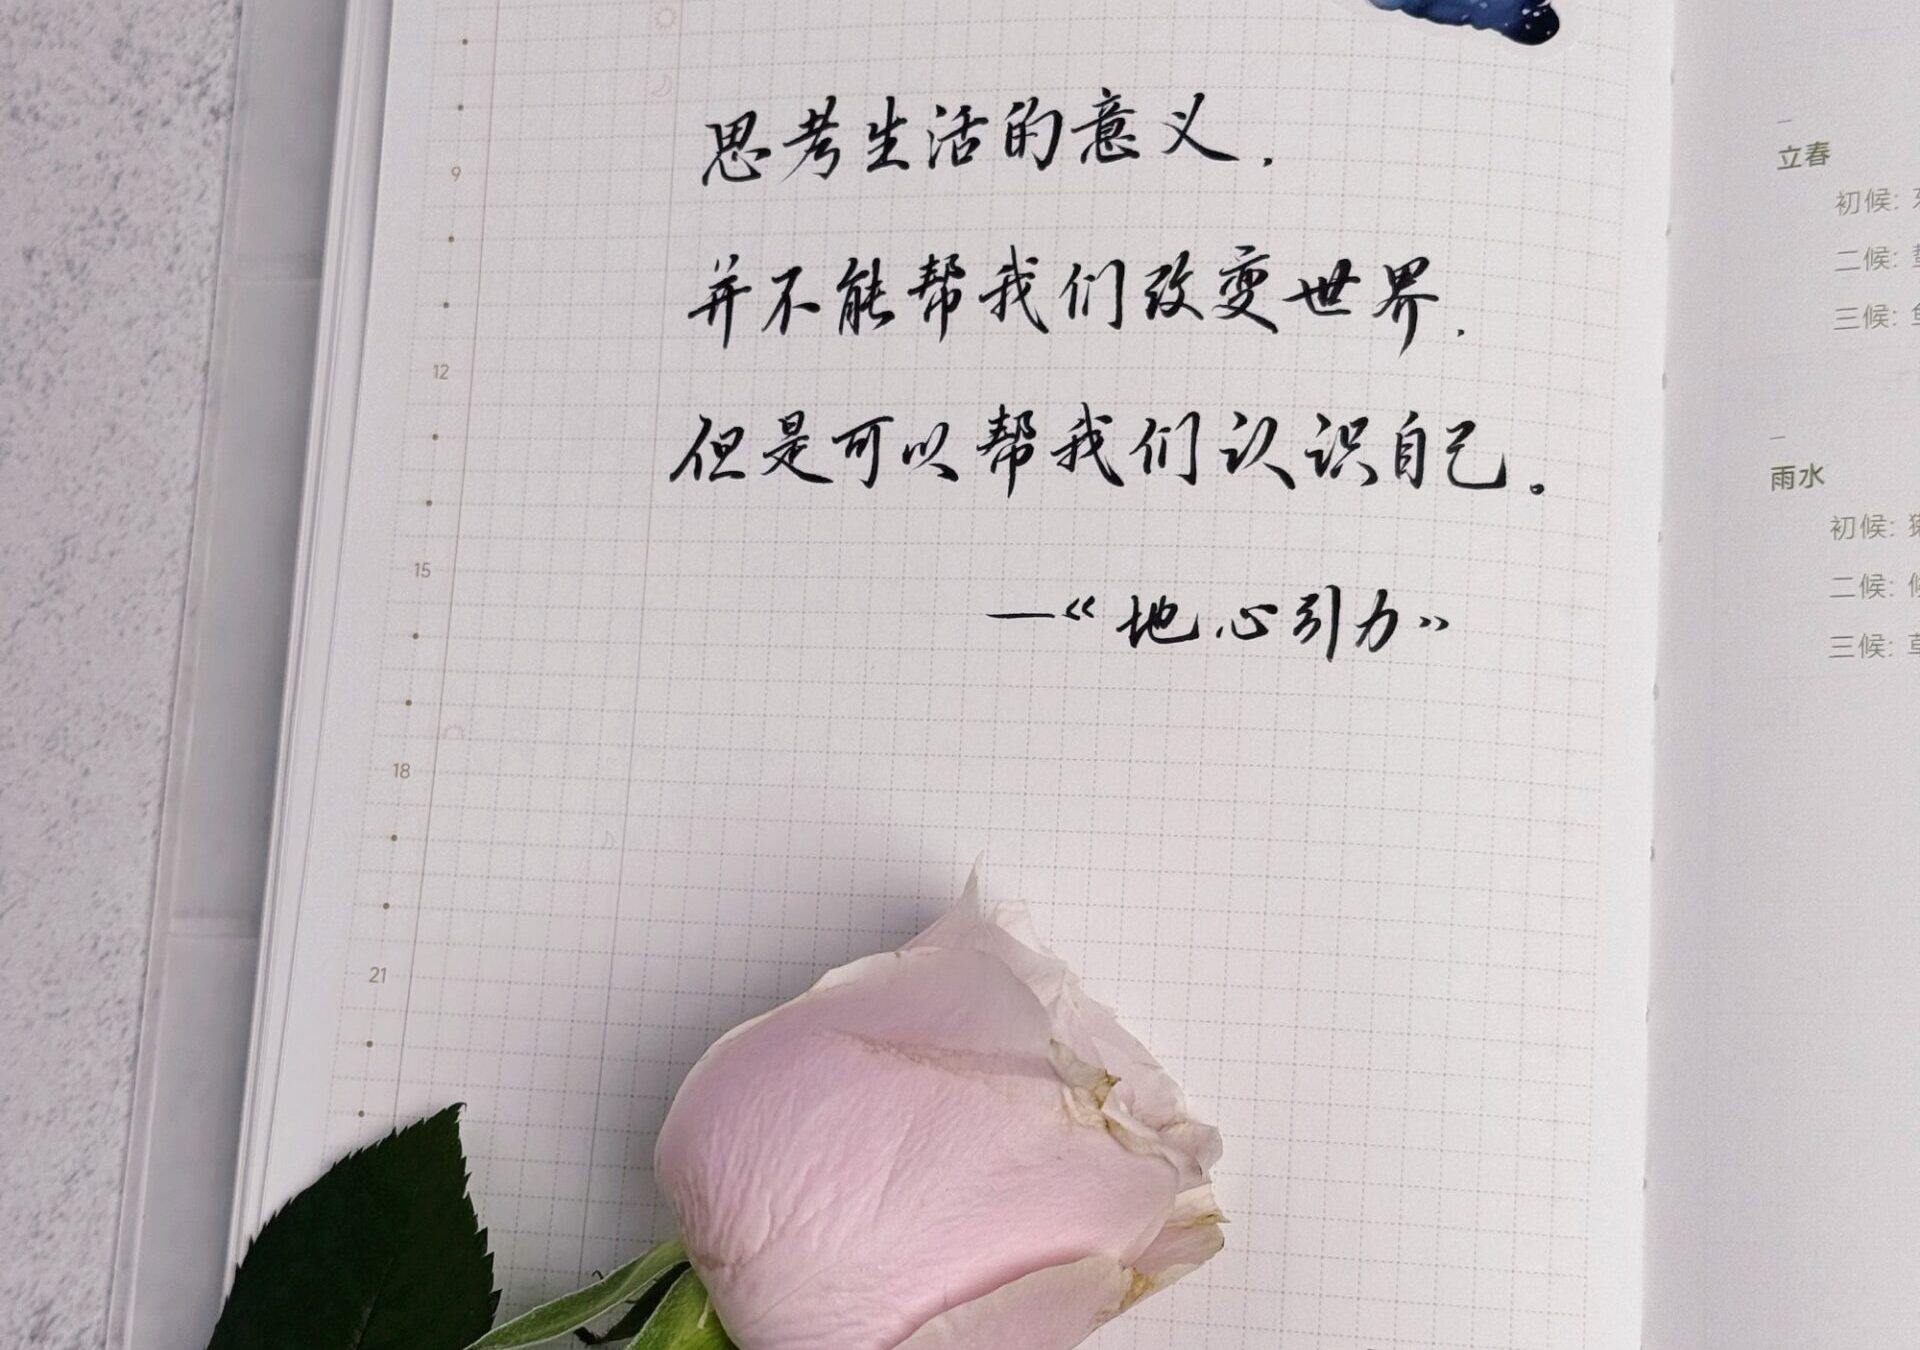 思考生活的意义，
并不能帮我们改变世界，
但是可以帮我们认识自己。
—《地心引力》
9
12
15
18
21
立春
初候:
二候:
三候:
雨水
初候:
二候:
三候: